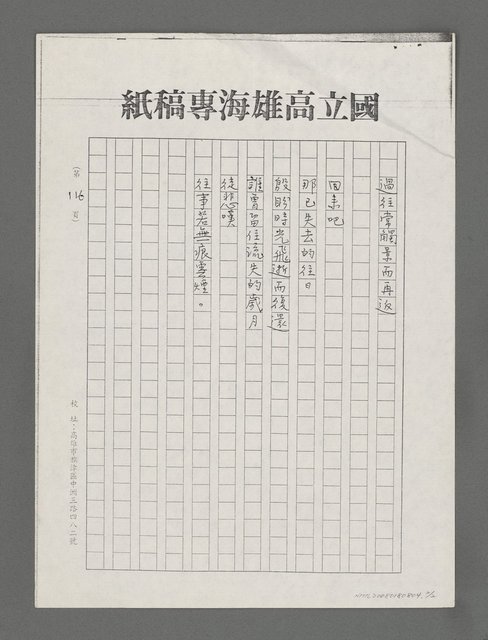 國立高雄海專稿紙
過往常觸景而再返
回來吧
那已失去的往日
殷盼時光飛逝而復還
誰曾留住流失的歲月
徒悲嘆
往事若無痕雲煙。
(第 116 頁)
校 址：高雄市旗津區中洲三路四八二號